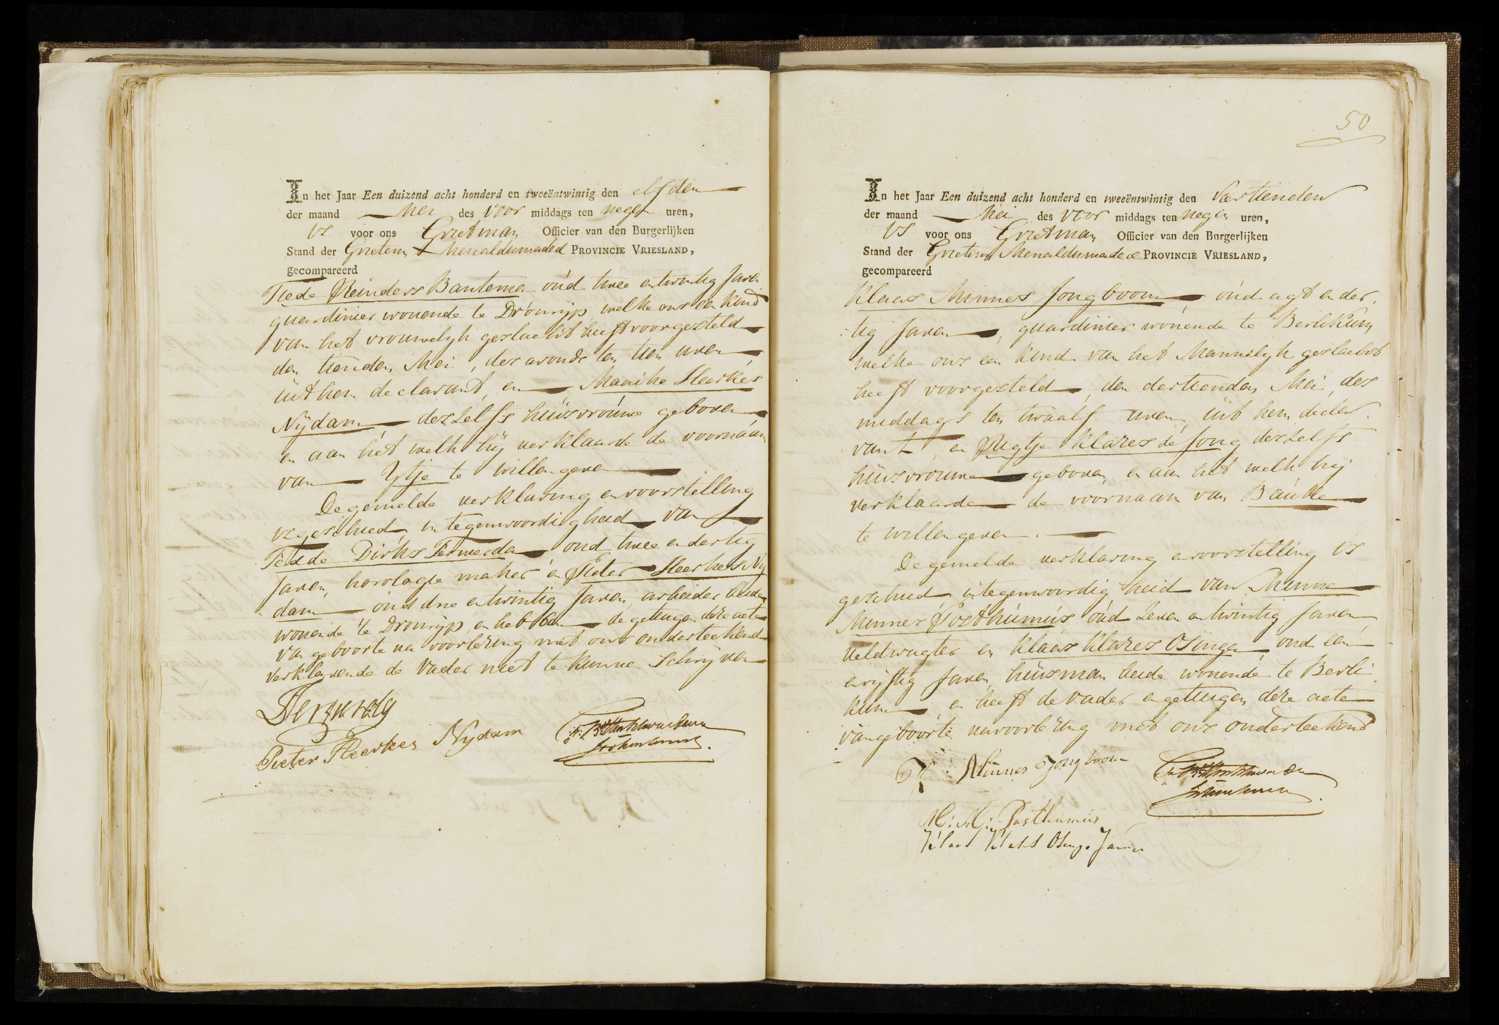 In het Jaar Een duizend acht honderd en tweeëntwintig den elfden
der maand Mei des voor middags ten negen uren,
is voor ons Grietman Officier van den Burgerlijken
Stand der Grietenij Menaldumadeel PROVINCIE VRIESLAND,
gecompareerd
Tiede Reinders Bantema oud twee en twintig Jaren
guardinier wonende te Dronrijp welke ons een kind
van het vrouwelijk geslacht heeft voorgesteld
den tienden Mei, des avonds ten tien uren
uit hem declarant, en Maaike Sleeskes
Nijdam deszelfs huisvrouw geboren
en aan het welk hij verklaarde de voornaam
van Ytje te willen geven
De gemelde verklaring en voorstelling
is geschied in tegenwoordigheid van
Tjedde Dirks Termeeda oud twee en dertig
Jaren, horologie maker en Pieter Sleeskes Nij
dam oud drie en twintig Jaren, arbeider beiden
wonende te Dronrijp en hebben de getuigen deze acte
van geboorte na voorlezing met ons onderteekend
verklarende de Vader niet te kunnen schrijven
Pieter Sleeskes Nijdam
50
In het Jaar Een duizend acht honderd en tweeëntwintig den Veertienden
der maand Mei des voor middags ten negen uren,
is voor ons Grietman Officier van den Burgerlijken
Stand der Grietenij Menaldumadeel PROVINCIE VRIESLAND,
gecompareerd
Klaas Minnes Jongboom oud agt en der
tig Jaren, guardinier wonende te Berlikum
welke ons een kind van het Mannelijk geslacht
heeft voorgesteld, den dertienden Mei, des
middags ten twaalf uren, uit hem decla
rant, en Regtje Klazes de Jong deszelfs
huisvrouwe geboren en aan het welk hij
verklaarde de voornaam van Bauke
te willen geven.
De gemelde verklaring en voorstelling is
geschied in tegenwoordigheid van Minne
Minnes Posthumus oud zeven en twintig Jaren
veldwagter en Klaas Klazes Osinga oud een
en vijftig Jaren, huisman beide wonende te Berli
kum, en heeft de vader en getuigen deze acte
van geboorte na voorlezing met ons onderteekend
K: Minnes Jongboom
M: M: Posthumus
Klaas Klases Osinga